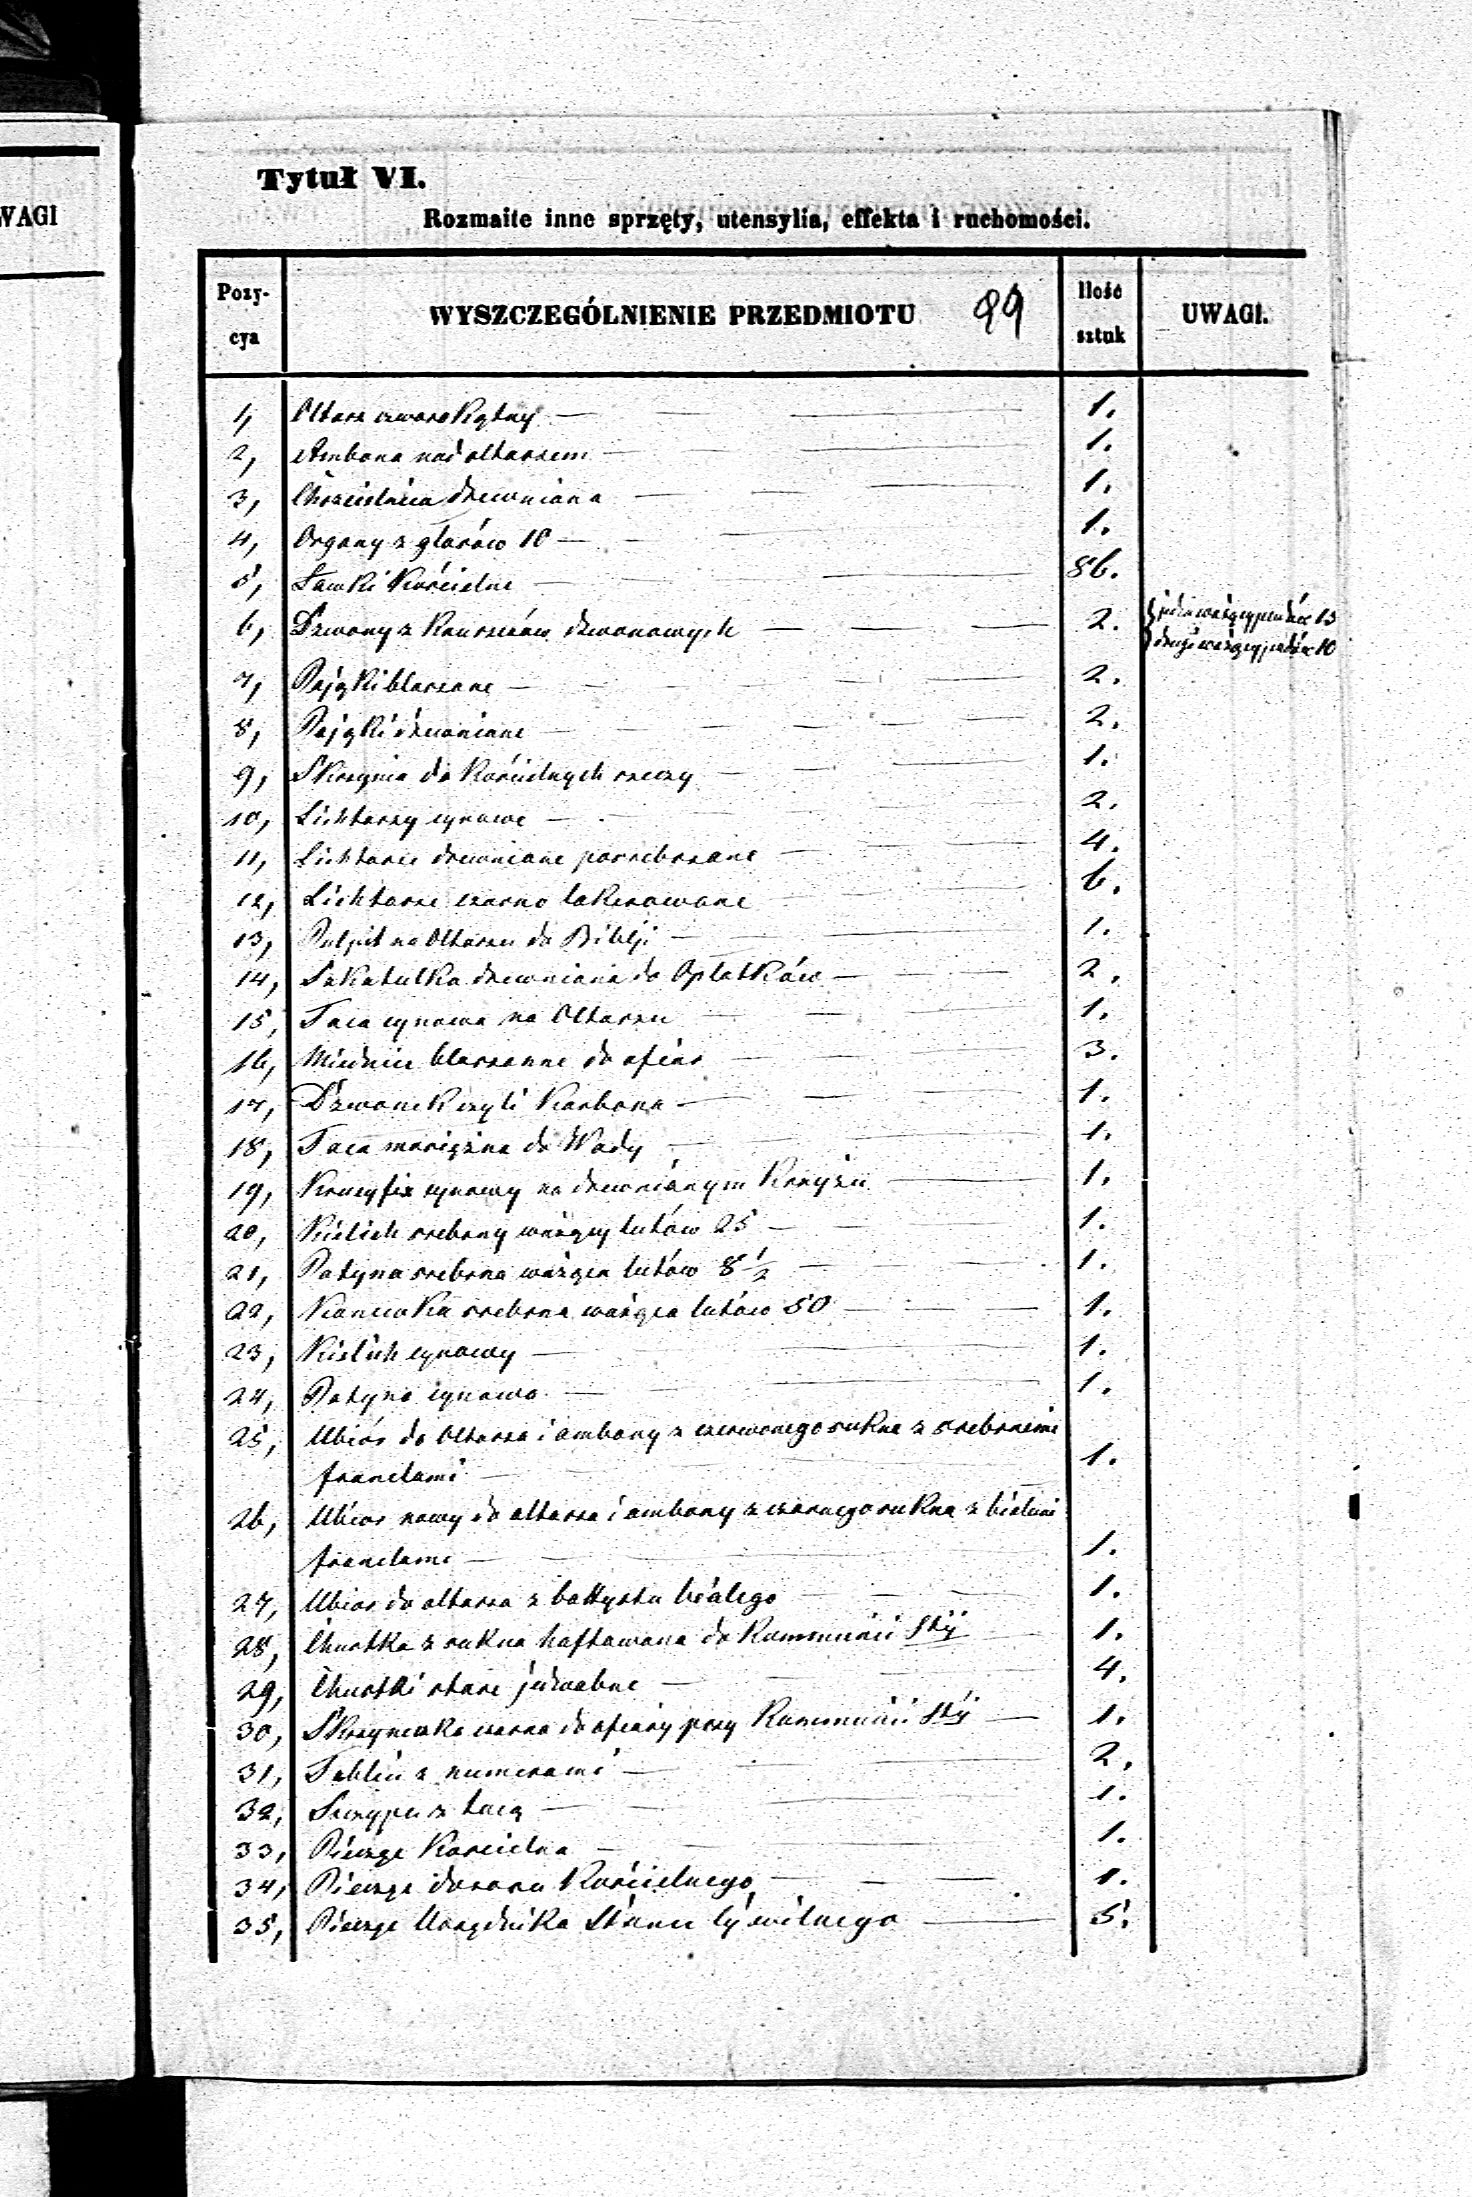 WAGI
Tytuł VI.
Rozmaite inne sprzęty, utensylia, effekta i ruchomości.
Pozy-cya WYSZCZEGÓLNIENIE PRZEDMIOTU 99 Ilość sztuk UWAGI.
1, Ołtarz czworokątny 1.
2, Ambona nad ołtarzem 1.
3, Chrzcielnica drewniana 1.
4, Organy z głosów 10 1.
5, Ławki kościelne 86.
6, Dzwony z kruszców dzwonowych 2. jeden ważący pudów 13
drugi ważący pudów 10
7, Pająki blaszane 2.
8, Pająki drewniane 2.
9, Skrzynia do kościelnych rzeczy 1.
10, Lichtarzy cynowe 2.
11, Lichtarze drewniane posrebrzane 4.
12, Lichtarze czarno lakierowane 6.
13, Pulpit na Ołtarzu do Biblji 1.
14, Szkatułka drewniana do Opłatków 2.
15, Taca cynowa na Ołtarzu 1.
16, Miednice blaszanne do ofiar 3.
17, Dzwonek czyli Karbona 1.
18, Taca mosiężna do Wody 1.
19, Krucyfix cynowy na drewnianym Krzyżu 1.
20, Kielich srebrny ważący łutów 25 1.
21, Patyna srebrna ważąca łutów 8 1/2 1.
22, Konewka srebrna ważąca łutów 50 1.
23, Kielich cynowy 1.
24, Patyna cynowa 1.
25, Ubiór do Ołtarza i ambony z czerwonego sukna z srebrnemi
franclami 1.
26, Ubior nowy do ołtarza i ambony z czarnego sukna z białemi
franclami 1.
27, Ubior do ołtarza z battystu białego 1.
28, Chustka z sukna haftowana do Kommunii Stéj 1.
29, Chustki stare jedwabne 4.
30, Skrzyneczka czarna do ofiary przy Kommunii Stéj 1.
31, Tablice z numerami 2.
32, Szczypce z tacą 1.
33, Pieczęć Koscielna 1.
34, Pieczęć dozoru Kościelnego 1.
35, Pieczęć Urzędnika Stanu Cywilnego 5.